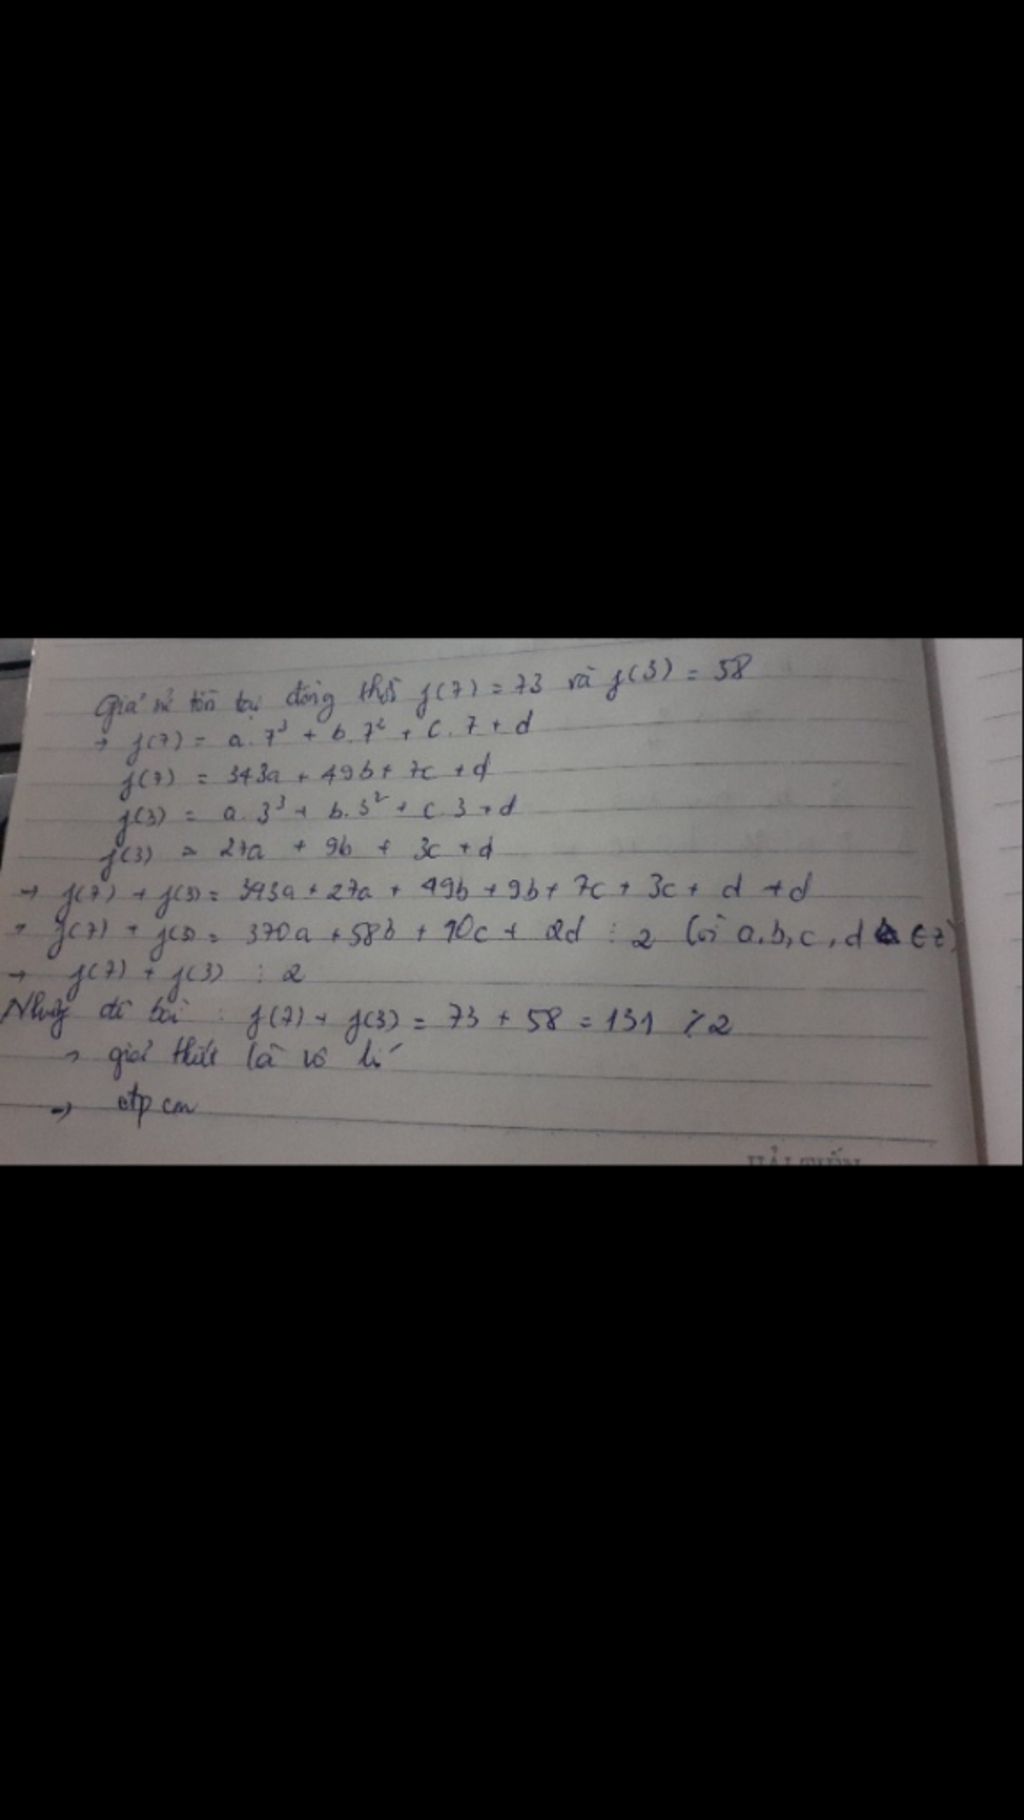 Giả sử tồn tại đồng thời f(7) = 73 và f(3) = 58
→ f(7) = a.7³ + b.7² + c.7 + d
f(7) = 343a + 49b + 7c + d
f(3) = a.3³ + b.3² + c.3 + d
f(3) = 27a + 9b + 3c + d
→ f(7) + f(3) = 343a + 27a + 49b + 9b + 7c + 3c + d + d
→ f(7) + f(3) = 370a + 58b + 10c + 2d ⋮ 2 (vì a,b,c,d ∈ z)
→ f(7) + f(3) ⋮ 2
Nhưng đề bài : f(7) + f(3) = 73 + 58 = 131 ⋮̸ 2
→ giả thiết là vô lí
→ đpcm
HẢI TIẾN